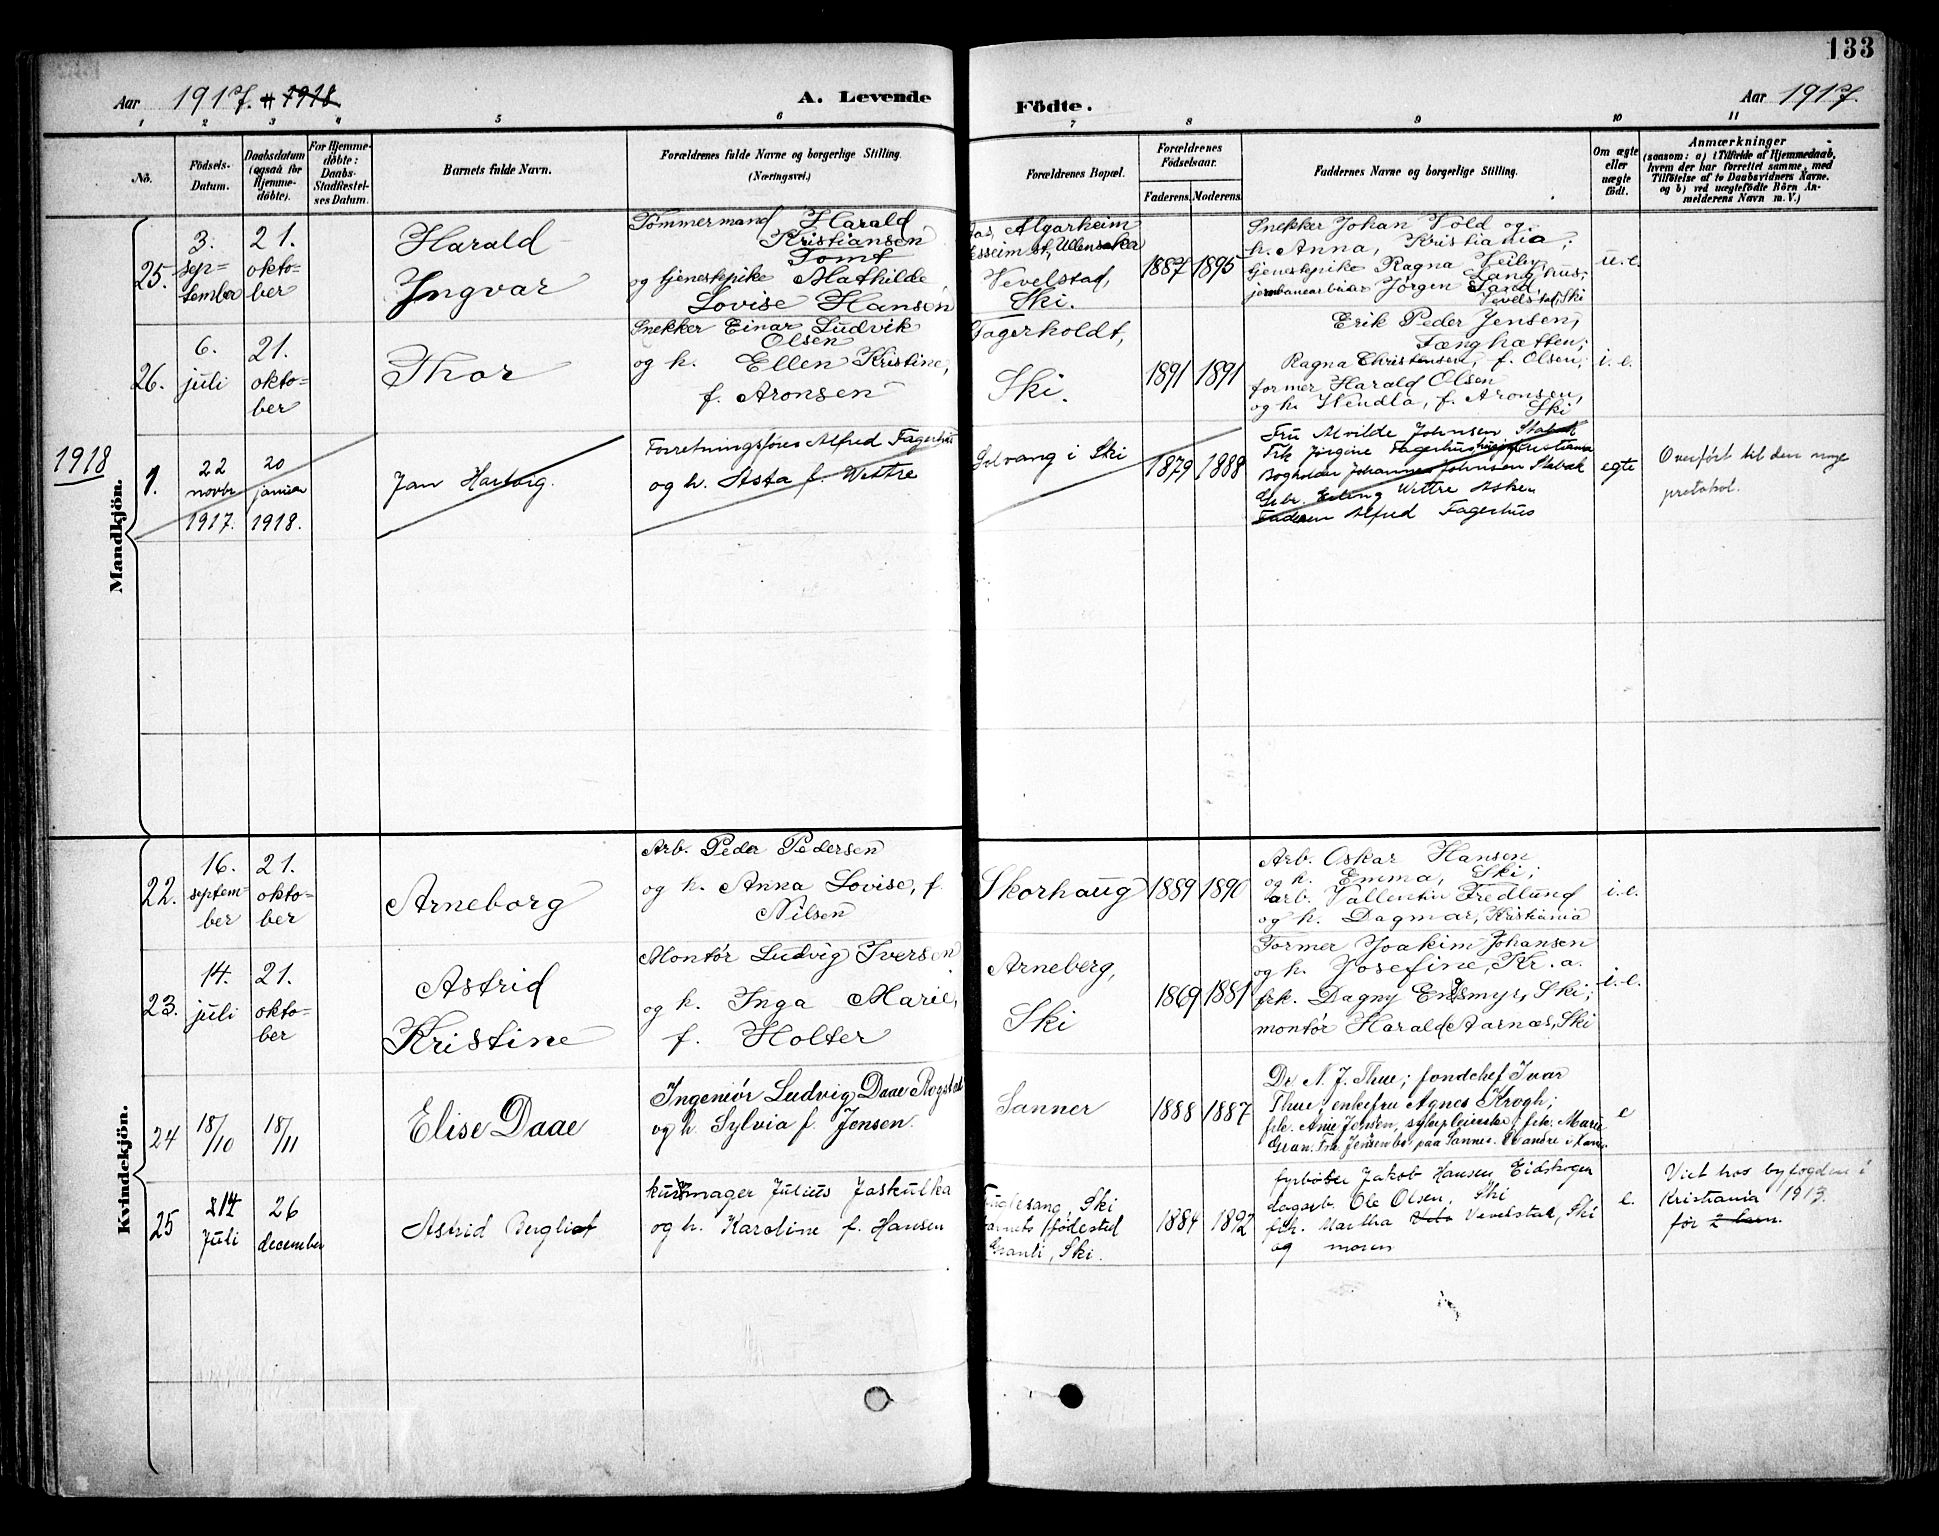 133
Aar 1917. # 1918.
A. Levende
Födte.
Aar 1917.
1 2 3 4 5 6 7 8 9 10 11
No.
Födsels-
Datum.
Daabsdatum
(ogsaa for
Hjemme-
døbte).
For Hjemme-
døbte:
Daabs-
Stadfæstel-
ses Datum.
Barnets fulde Navn.
Forældrenes fulde Navne og borgerlige Stilling.
(Næringsvei.)
Forældrenes Bopæl.
Forældrenes
Födselsaar.
Faderens. Moderens.
Faddernes Navne og borgerlige Stilling.
Om ægte
eller
uægte
født.
Anmærkninger
(saasom: a) i Tilfælde af Hjemmedaab,
hvem der har forrettet samme, med
Tilföielse af to Daabsvidners Navne.
og b) ved uægtefödte Börn An-
melderens Navn m. V.)
Mandkjön.
25.
3.
sep=
tember
21.
okto=
ber
Harald
Yngvar
Tömmermand Harald
Kristiansen
Tomt
og tjenestepike Mathilde
Lovise Hansen
Algarheim
st, Ullensaker
Vevelstad,
Ski.
1887 1895
Snekker Johan Vold og
h. Anna, Kristiania;
tjenestepike Ragna Veiby,
Langhus;
jernbanearbeider Jörgen Sand,
Vevelstad, Ski
u. e.
26.
6.
juli
21.
okto=
ber
Thor
Snekker Einar Ludvik
Olsen
og h. Ellen Kristine,
f. Aronsen
Fagerholdt,
Ski.
1891 1891
Erik Peder Jensen,
Længhatten;
Ragna Christensen, f. Olsen;
former Harald Olsen
og h. Hendla, f. Aronsen,
Ski
i. e.
1918
1.
22
novbr
1917.
20
januar
1918.
Jan Harborg.
Forretningsfører Alfred Fagerhus
og h. Asta f. Wettre
Solvang i Ski
1879 1888
Fru Alvilde Johnsen Stabæk
Frk Jörgine Fagerhus Kristiania
Bogholder Johannes Johnsen Stabæk
Gbr. Erling Wettre Asker
Faderen Alfred Fagerhus
egte
Overført til den nye
protokol.
Kvindekjön.
22.
16.
septem=
ber
21.
okto=
ber
Arneborg
Arb. Peder Pedersen
og h. Anna Lovise, f.
Nilsen
Skorhaug
1889 1890
Arb. Oskar Hansen
og h. Emma, Ski;
arb. Vallentin Fredlund
og h. Dagmar, Kristiania
i. e.
23.
14.
juli
21.
okto=
ber
Astrid
Kristine
Montör Ludvig Iversen
og h. Inga Marie,
f. Holter
Arneberg,
Ski
1869 1881
Former Joakim Johansen
og h. Josefine, Kr. a.
frk. Dagny Engsmyr, Ski;
montör Harald Aarnæs, Ski
i. e.
24
18/10
18/11
Elise Daae
Ingeniør Ludvig Daae Rogstad
og h. Sylvia f. Jensen.
Sanner
1888 1887
Dr. N. J. Thue; fondchef Ivar
Thue; enkefru Agnes Krogh;
frk. Anie Jensen, sykepleierske; frk. Marie
Gran. Frk. Jensen bor paa Sanner. De andre i Krania.
e
25
14
Juli
26
december
Astrid Bergliot
kurvmager Julius Jaskulka
og h. Karoline f. Hansen
Fuglesang, Ski
Barnets fødested
Granli, Ski.
1884 1892
fyrbøter Jakob Hansen, Eidskogen
dagarb. Ole Olsen, Ski
frk. Martha Vevelstad, Ski
og moren
e.
Viet hos byfogden i
Kristiania 1913.
før 2 barn.